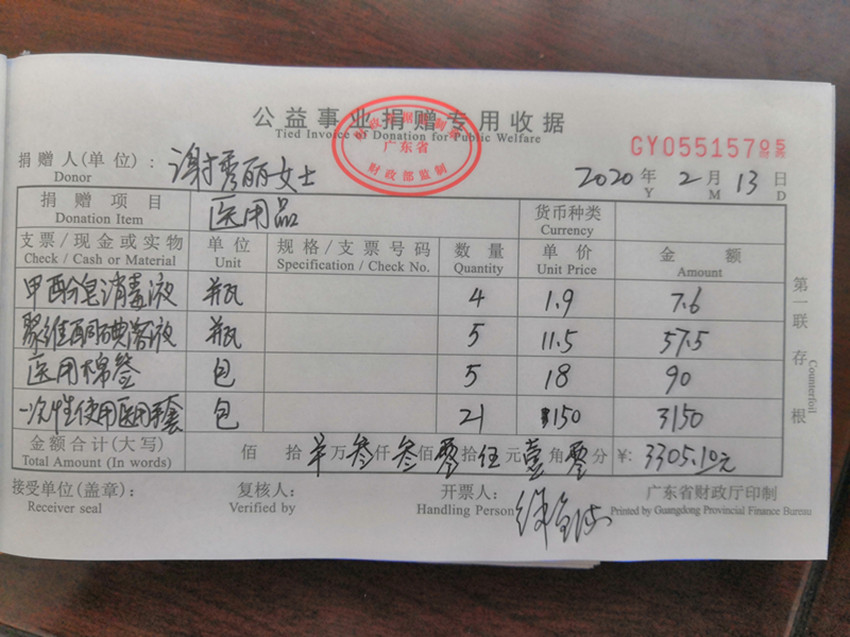 公益事业捐赠专用收据
Tied Invoice of Donation for Public Welfare
财政部监制
广东省
GY05515705
捐赠人(单位): 谢秀丽女士
Donor
2020年2月13日
Y M D
捐赠项目 医用品 货币种类
Donation Item Currency
支票/现金或实物 单位 规格/支票号码 数量 单价 金额
Check / Cash or Material Unit Specification / Check No. Quantity Unit Price Amount
甲酚皂消毒液 瓶 4 1.9 7.6
聚维酮碘溶液 瓶 5 11.5 57.5
医用棉签 包 5 18 90
一次性使用医用手套 包 21 150 3150
金额合计(大写) 佰 拾 万叁仟叁佰零拾伍元壹角零分 ¥: 3305.10元
Total Amount (In words)
接受单位(盖章): 复核人: 开票人: 广东省财政厅印制
Receiver seal Verified by Handling Person Printed by Guangdong Provincial Finance Bureau
第一联 存根
Counterfoil